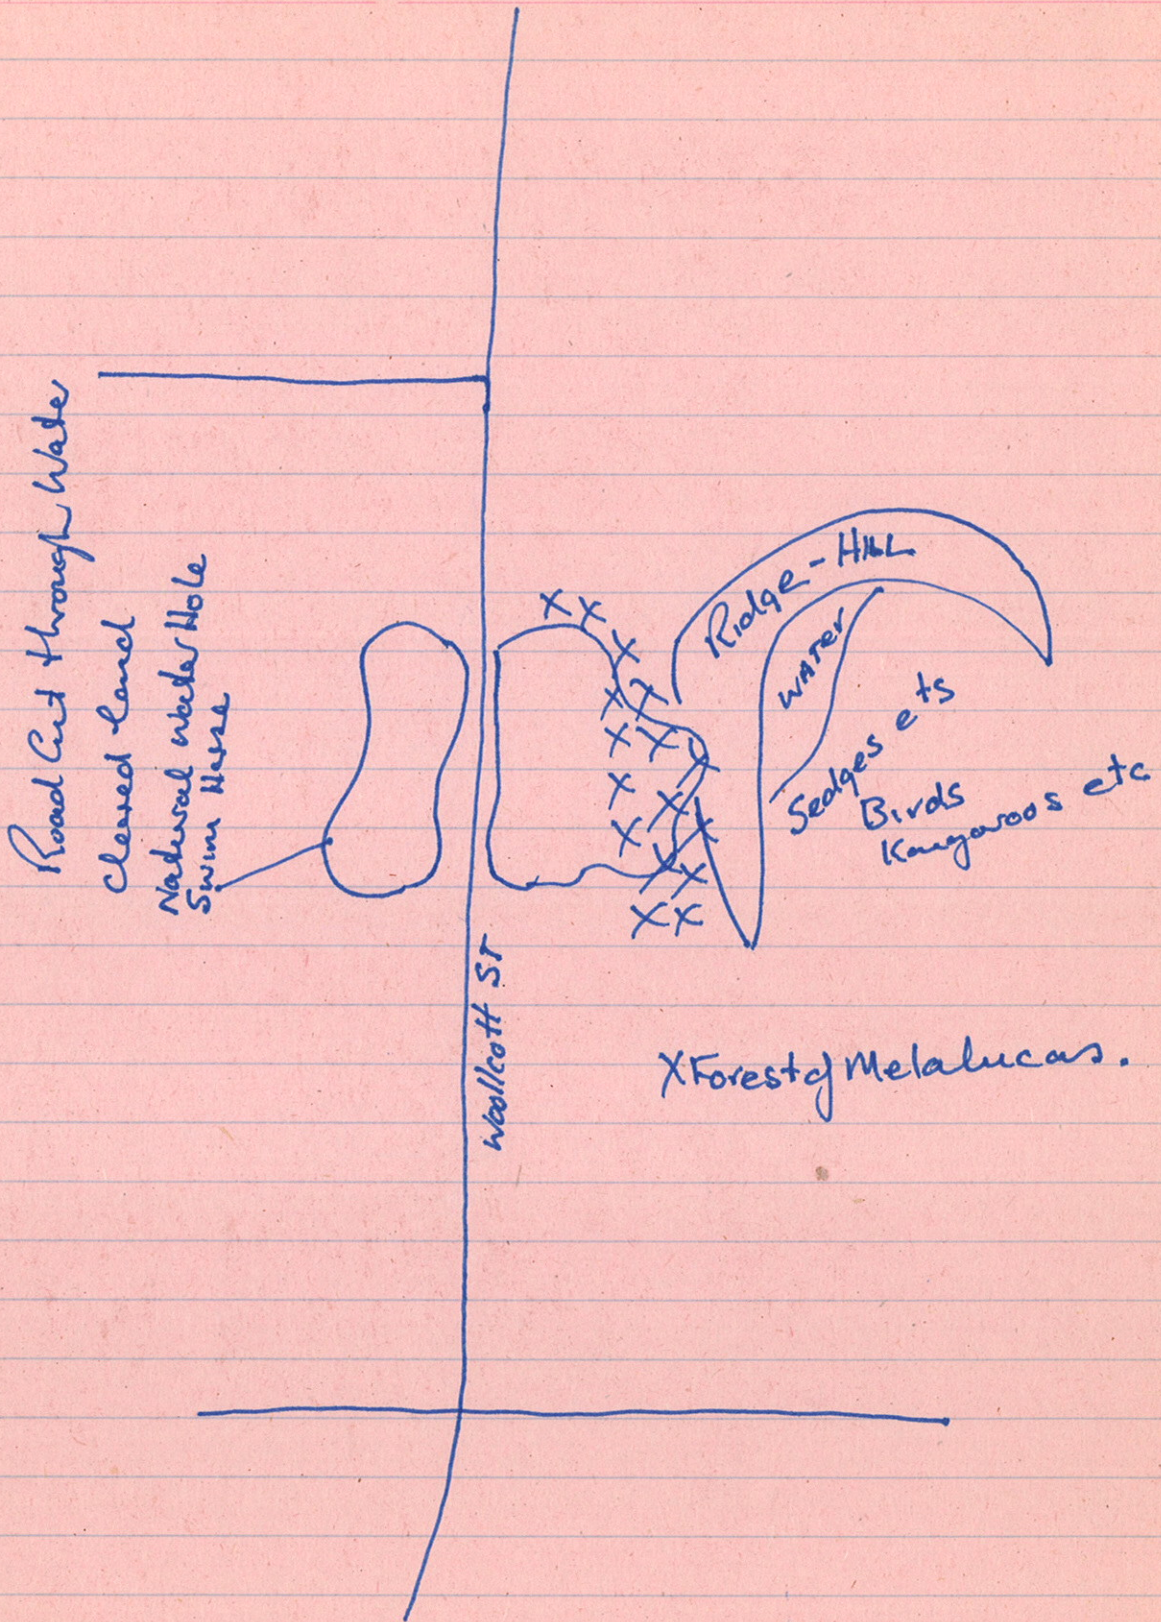 Road Cut through Wate
Cleared land
Natural Water Hole
Swim Horse
Ridge - HILL
WATER
Sedges ets
Birds
Kangaroos etc
Woollcott ST
X Forest of Melalucas.